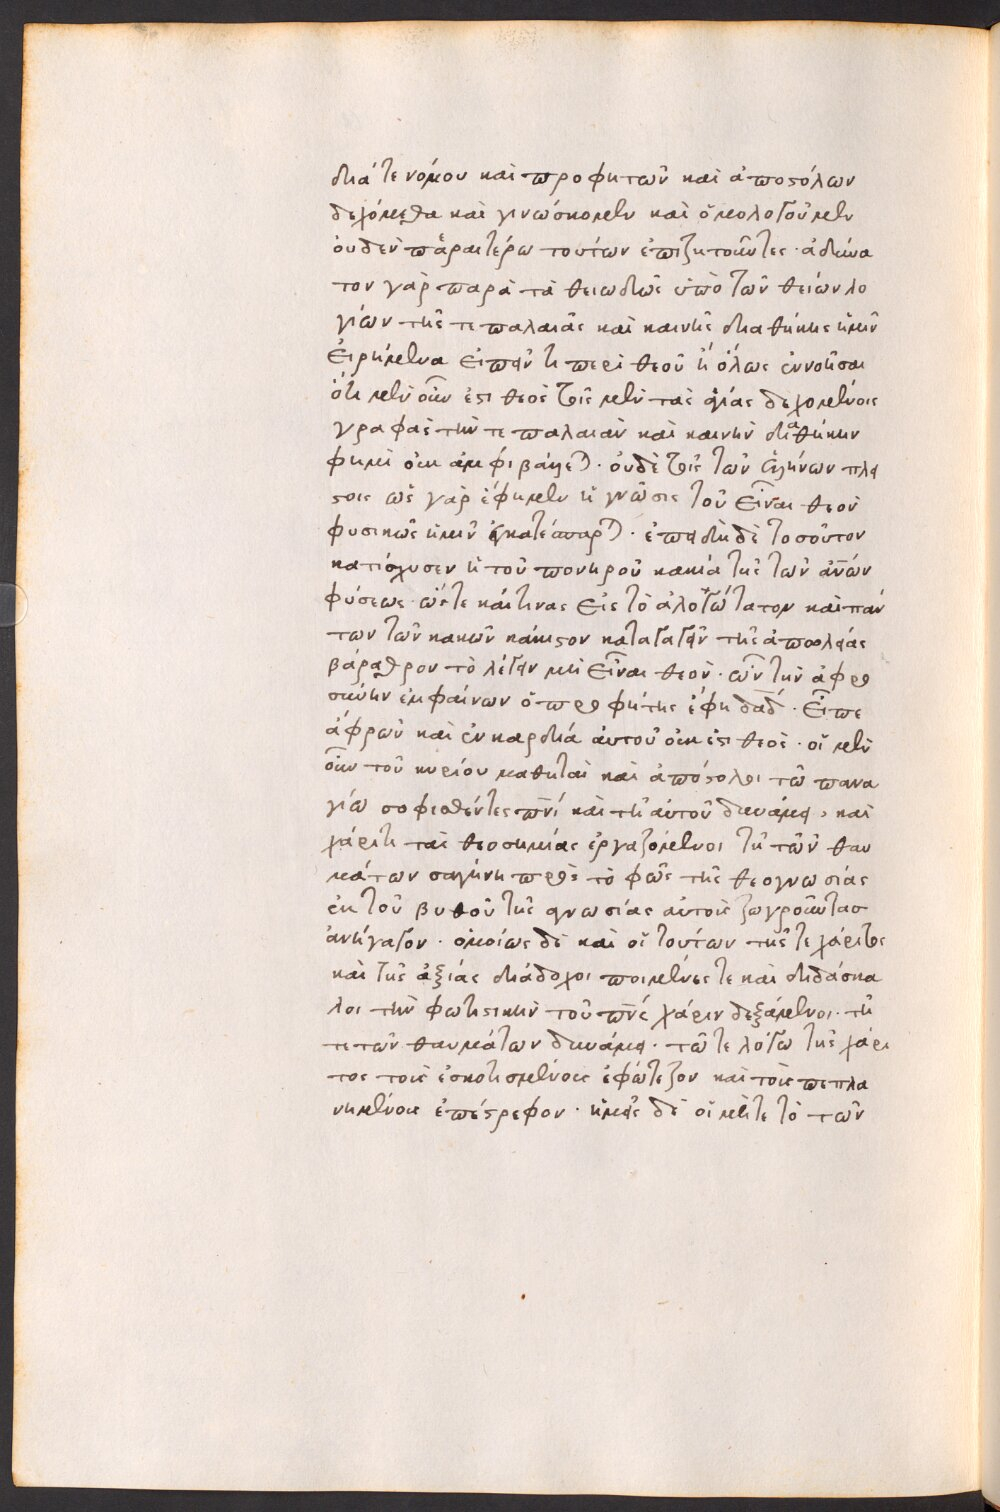 διά τε νόμου καὶ προφητῶν καὶ ἀποστόλων
δεχόμεθα καὶ γινώσκομεν καὶ ὁμολογοῦμεν
οὐδὲν περαιτέρω τούτων ἐπιζητοῦντες · ἀδύνα
τον γὰρ παρὰ τὰ θειωδῶς ὑπὸ τῶν θείων λο
γίων τῆς τε παλαιᾶς καὶ καινῆς διαθήκης ἡμῖν
εἰρημένα εἰπεῖν τι περὶ θεοῦ ἢ ὅλως ἐννοῆσαι
ὅτι μὲν οὖν ἔστι θεὸς τοῖς μὲν τὰς ἁγίας δεχομένοις
γραφὰς τήν τε παλαιὰν καὶ καινὴν διαθήκην
φημὶ οὐκ ἀμφιβάλλεται · οὐδὲ τοῖς τῶν ἑλλήνων πλεί
στοις ὡς γὰρ ἔφημεν ἡ γνῶσις τοῦ εἶναι θεὸν
φυσικῶς ἡμῖν ἐγκατέσπαρται · ἐπειδὴ δὲ τοσοῦτον
κατίσχυσεν ἡ τοῦ πονηροῦ κακία τῆς τῶν ἀνῶν
φύσεως · ὥστε καί τινας εἰς τὸ ἀλογώτατον καὶ πάν
των τῶν κακῶν κάκιστον καταγαγεῖν τῆς ἀπωλείας
βάραθρον τὸ λέγειν μὴ εἶναι θεὸν · ὧν τὴν ἀφρο
σύνην ἐμφαίνων ὁ προφήτης ἔφη δαδ · εἶπε
ἄφρων καὶ ἐν καρδία αὐτοῦ οὐκ ἔστι θεὸς · οἱ μὲν
οὖν τοῦ κυρίου μαθηταὶ καὶ ἀπόστολοι τῶ πανα
γίω σοφισθέντες πνι καὶ τῆ αὐτοῦ δυνάμει, καὶ
χάριτι τὰς θεοσημίας ἐργαζόμενοι τῆ τῶν θαυ
μάτων σαγήνη πρὸς τὸ φῶς τῆς θεογνωσίας
ἐκ τοῦ βυθοῦ τῆς αγνωσίας αὐτοὺς ζωγροῦντας
ἀνῆγαγον · ὁμοίως δὲ καὶ οἱ τούτων τῆς τε χάριτος
καὶ τῆς ἀξίας διάδοχοι ποιμένες τε καὶ διδάσκα
λοι τὴν φωτιστικὴν τοῦ πνς χάριν δεξάμενοι · τῆ
τε τῶν θαυμάτων δυνάμει · τῶ τε λόγω τῆς χάρι
τος τοὺς ἐσκοτισμένους ἐφώτιζον καὶ τοὺς πεπλα
νημένους ἐπέστρεφον · ἡμεῖς δὲ οἱ μήτε τὸ τῶν